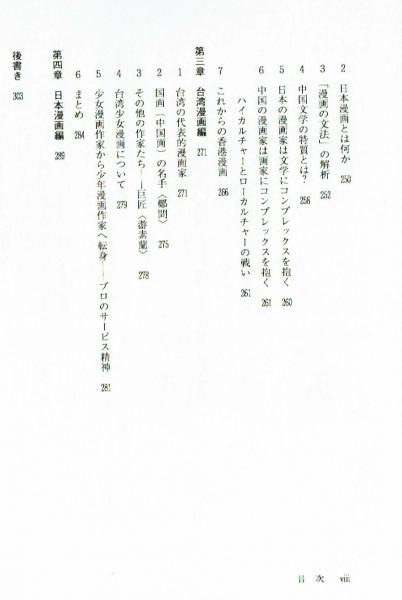 2 日本漫画とは何か 250
3 「漫画の文法」の解析 252
4 中国文学の特質とは? 256
5 日本の漫画家は文学にコンプレックスを抱く 260
6 中国の漫画家は画家にコンプレックスを抱く 261
ハイカルチャーとローカルチャーの戦い 261
7 これからの香港漫画 266
第三章 台湾漫画編 271
1 台湾の代表的漫画家 271
2 国画(中国画)の名手〈鄭問〉 275
3 その他の作家たち——巨匠〈游素蘭〉 278
4 台湾少女漫画について 279
5 少女漫画作家から少年漫画作家へ転身——プロのサービス精神 281
6 まとめ 284
第四章 日本漫画編 289
後書き 303
目次 viii